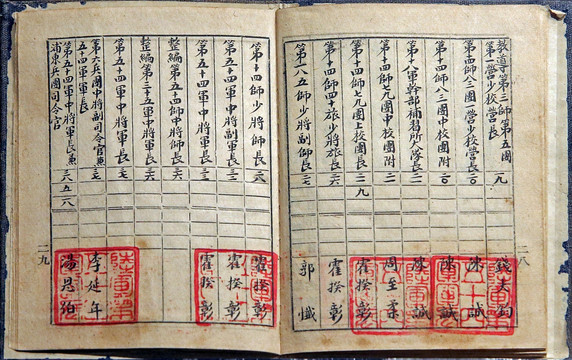 教導第三師第五團
第一營少校營長 一九 錢大鈞
第十四師八三團一營少校營長 二〇 陳誠
第十四師八三團中校團附 二〇 陳誠
十八軍幹部補習所大隊長 二一 陳誠
第十四師七九團中校團附 二一 周至柔
第十四師七九團上校團長 二一 九 霍揆彰
第十四師四十旅少將旅長 二六 霍揆彰
第一八五師少將副師長 二七 郭懺
二八
第十四師少將師長 二八 霍揆彰
第五十四軍中將副軍長 三一 霍揆彰
第五十四軍中將軍長 三二 霍揆彰
整編第五十四師中將師長 三六
整編第三十五軍中將軍長 三六
第五十四軍中將軍長 三七
第六兵團中將副司令官兼
五十四軍軍長 三七 李延年
第五十四軍中將軍長兼
浦東兵團司令官 三八 五 一八 湯恩伯
二九